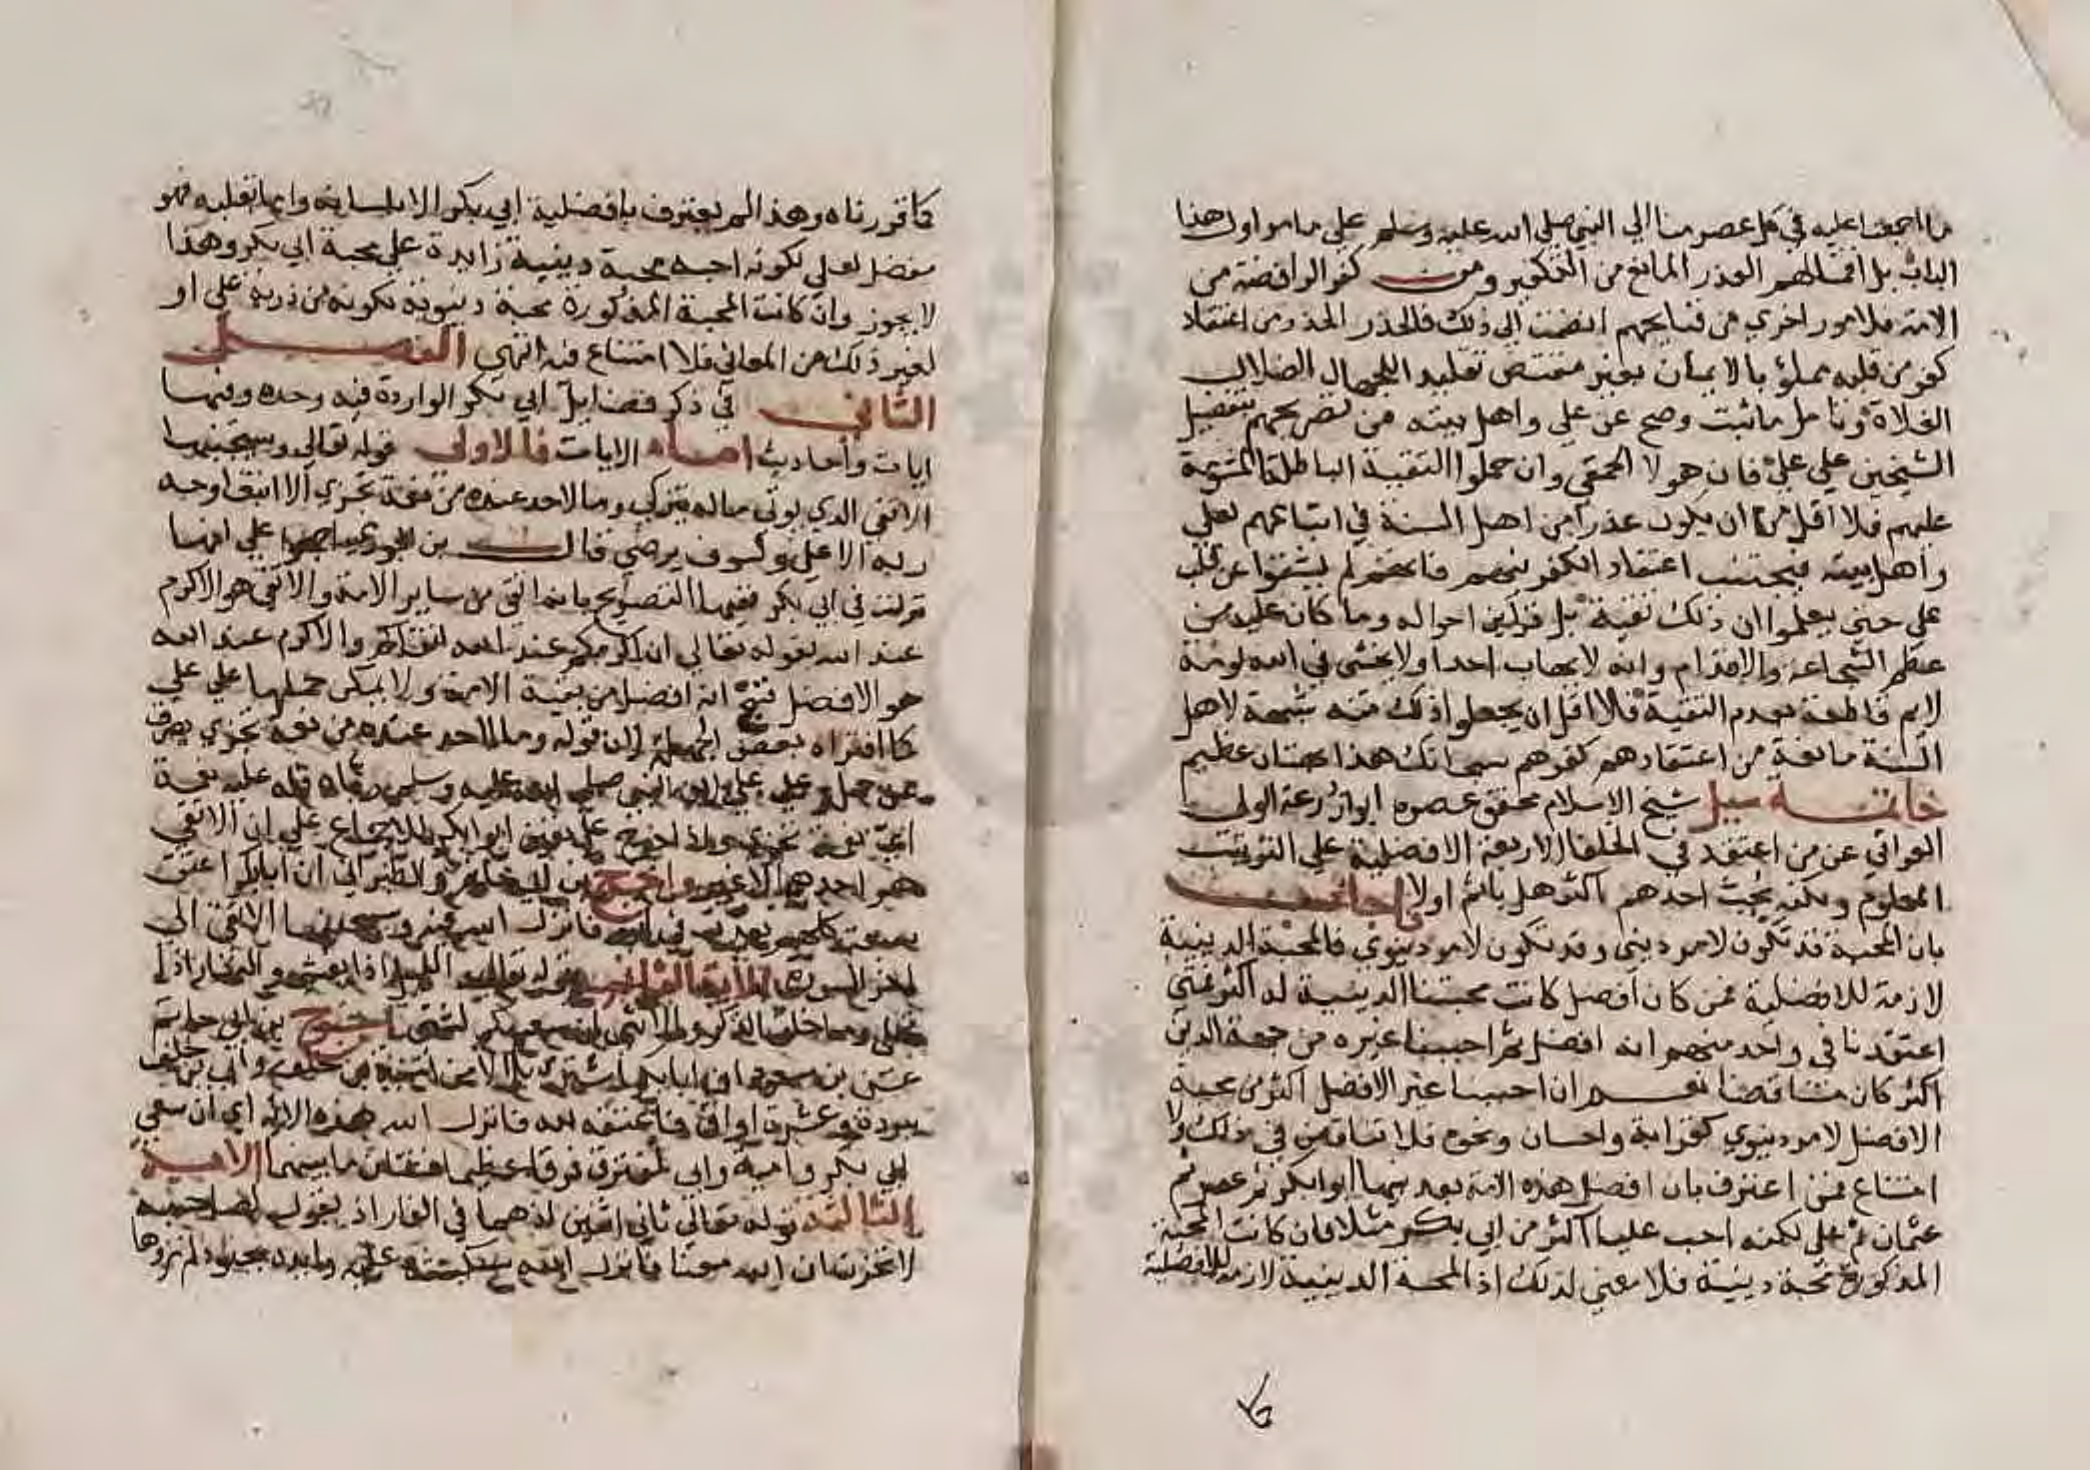 ما اجمعنا عليه في كل عصر منا الي النبي صلي الله عليه وسلم علي ما مر اول هذا
الباب بل اقمنا لهم العذر المانع من التكفير ومن كفر الرافضة من
الامة فلامور اخري من قبايحهم انضمت الي ذلك فالحذر الحذر من اعتقاد
كفر من قلبه مملؤ بالايمان بغير مقتض تقليد اللجهال الضلال
الغلاة وتامل ما ثبت وصح عن علي واهل بيته من تصريحهم بتفضيل
الشيخين علي علي فان هولا الحمقي وان حملوا التقية الباطلة المشومة
عليهم فلا اقل من ان يكون عذرا من اهل السنة في اتباعهم لعلي
واهل بيته فيجتنب اعتقاد الكفر فيهم فانهم لم يشقوا عن قلب
علي حتي يعلموا ان ذلك تقية بل قراين احواله وما كان عليه من
عظم الشجاعة والاقدام وانه لا يهاب احدا ولا يخشي في الله لومة
لايم قاطعة بعدم التقية فلا اقل ان يجعلوا ذلك منه شبهة لاهل
السنة مانعة من اعتقادهم كفرهم سبحانك هذا بهتان عظيم
خاتمة سيل شيخ الاسلام محقق عصره ابو زرعة الولي
العراقي عن من اعتقد في الخلفا الاربعة الافضلية علي الترتيب
المعلوم ولكنه يحب احدهم اكثر هل ياثم او لا فاجاب
بان المحبة قد تكون لامر ديني وقد تكون لامر دنيوي فالمحبة الدينية
لازمة للافضلية فمن كان افضل كانت محبتنا الدينية له اكثر فمتي
اعتقدنا في واحد منهم انه افضل ثم احببنا غيره من جهة الدين
اكثر كان متناقضا نعم ان احببنا غير الافضل اكثر من محبة
الافضل لامر دنيوي كقرابة واحسان ونحوه فلا تناقض في ذلك ولا
امتناع فمن اعترف بان افضل هذه الامة بعد نبيها ابو بكر ثم عمر ثم
عثمان ثم علي لكنه احب عليا اكثر من ابي بكر مثلا فان كانت المحبة
المذكورة محبة دينية فلا معني لذلك اذ المحبة الدينية لازمة للافضلية
كا
كما قررناه وهذا لم يعترف بافضلية ابي بكر الا بلسانه واما بقلبه فهو
مفضل لعلي لكونه احبه محبة دينية زايدة علي محبة ابي بكر وهذا
لا يجوز وان كانت المحبة المذكورة محبة دنيوية لكونه من ذرية علي او
لغير ذلك من المعاني فلا امتناع فيه انتهي الفصل
الثاني في ذكر فضايل ابي بكر الواردة فيه وحده وفيها
ايات واحاديث اما الايات فالاولي قوله تعالي وسيجنبها
الاتقي الذي يوتي ماله يتزكي وما لاحد عنده من نعمة تجزي الا ابتغا وجه
ربه الاعلي ولسوف يرضي قال بن الجوزي اجمعوا علي انها
نزلت في ابي بكر ففيها التصريح بانه اتقي من ساير الامة والاتقي هو الاكرم
عند الله لقوله تعالي ان اكرمكم عند الله اتقاكم والاكرم عند الله
هو الافضل فنتج انه افضل من بقية الامة ولا يمكن حملها علي علي
كما افتراه بعض الجهلة لان قوله وما لاحد عنده من نعمة تجزي يصرف
عن حمله علي علي لان النبي صلي الله عليه وسلم رباه فله عليه نعمة
اي نعمة تجزي واذا خرج علي تعين ابو بكر للاجماع علي ان الاتقي
هو احدهما لا غير واخرج بن ابي حاتم والطبراني ان ابا بكر اعتق
سبعة كلهم يعذب في الله فانزل الله قوله وسيجنبها الاتقي الي
اخر السورة الاية الثانية قوله تعالي والليل اذا يغشي والنهار اذا
تجلي وما خلق الذكر والانثي ان سعيكم لشتي اخرج بن ابي حاتم
عن بن مسعود ان ابا بكر اشتري بلالا من امية بن خلف وابي بن خلف
ببردة وعشرة اواق فاعتقه لله فانزل الله هذه الاية اي ان سعي
ابي بكر وامية وابي لمفترق فرقا عظيما فشتان ما بينهما الاية
الثالثة قوله تعالي ثاني اثنين اذ هما في الغار اذ يقول لصاحبه
لا تحزن ان الله معنا فانزل الله سكينته عليه وايده بجنود لم تروها